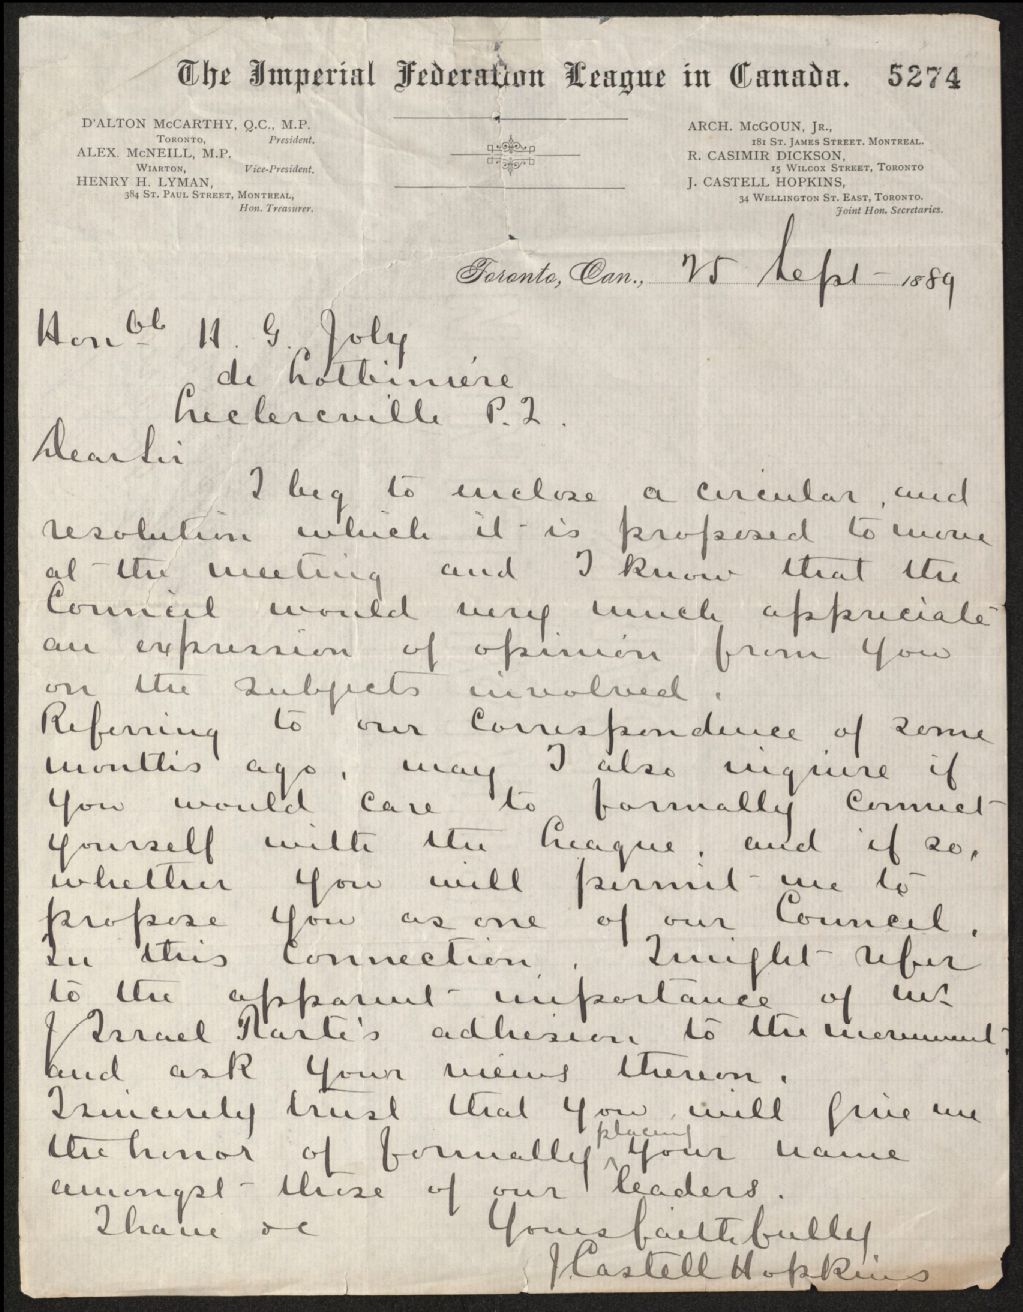 The Imperial Federation League in Canada. 5274
D'ALTON McCARTHY, Q.C., M.P.
TORONTO, President.
ALEX. McNEILL, M.P.
WIARTON, Vice-President.
HENRY H. LYMAN,
384 ST. PAUL STREET, MONTREAL,
Hon. Treasurer.
ARCH. McGOUN, JR.,
181 ST. JAMES STREET, MONTREAL.
R. CASIMIR DICKSON,
15 WILCOX STREET, TORONTO
J. CASTELL HOPKINS,
34 WELLINGTON ST. EAST, TORONTO.
Joint Hon. Secretaries.
Toronto, Can., 25 Sept 1889
Honble H. G. Joly
de Lotbiniére
Leclercville P.Q.
Dear Sir
I beg to inclose a circular, and
resolution which it is proposed to move
at the meeting and I know that the
Council would very much appreciate
an expression of opinion from you
on the subjects involved.
Referring to our correspondence of some
months ago, may I also inquire if
you would care to formally connect
yourself with the League, and if so,
whether you will permit me to
propose you as one of our Council.
In this connection, I might refer
to the apparent importance of Mr
J Israel Tarte's adhesion to the movement,
and ask your views thereon.
I sincerely trust that you will give me
the honor of formally placing your name
amongst those of our leaders.
I have &c Yours faithfully
J Castell Hopkins